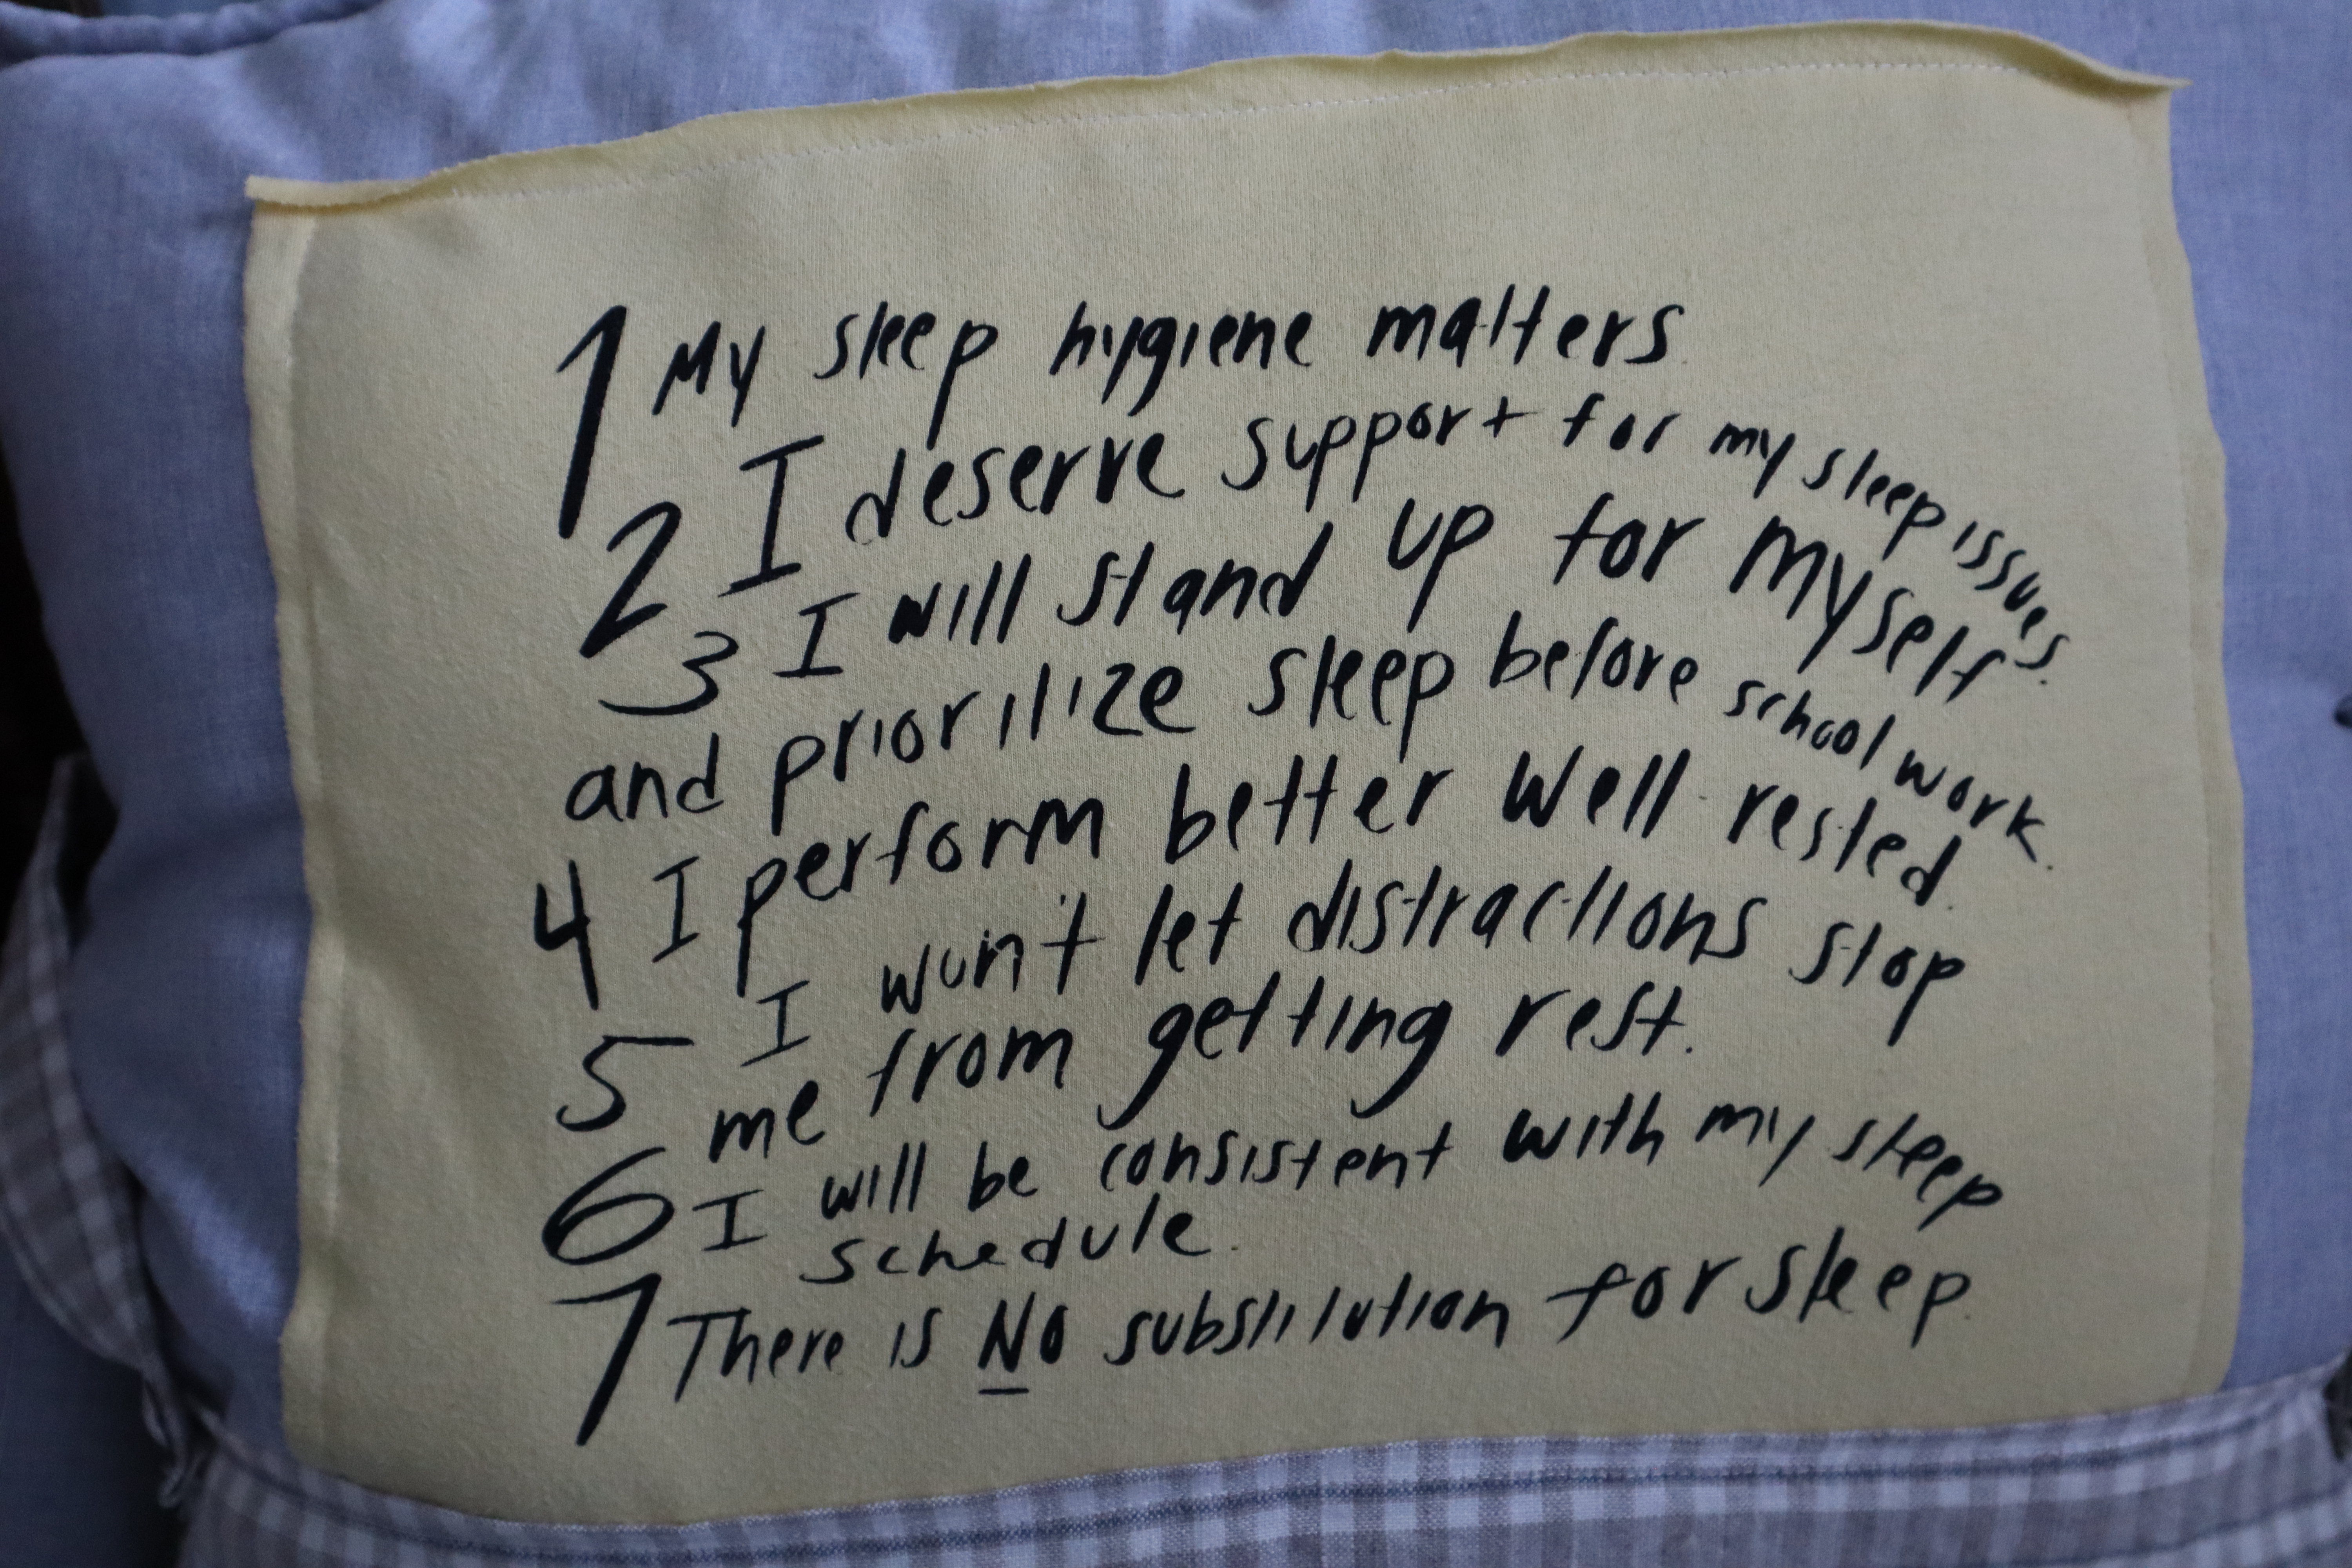 1 My sleep hygiene matters.
2 I deserve support for my sleep issues.
3 I will stand up for myself
and prioritize sleep before school work.
4 I perform better well rested.
5 I won't let distractions stop
me from getting rest.
6 I will be consistent with my sleep
schedule.
7 There is No substitution for sleep.